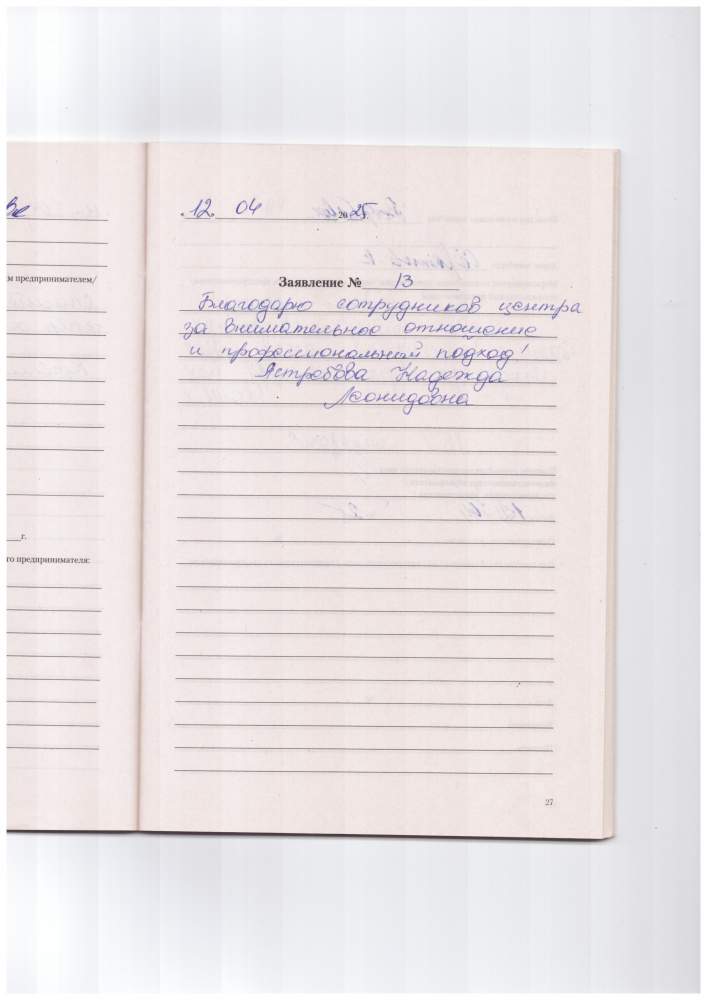 м предпринимателем/
г.
го предпринимателя:
«12» 04 2025
Заявление № 13
Благодарю сотрудников центра
за внимательное отношение
и профессиональный подход!
Ястребова Надежда
Леонидовна
27